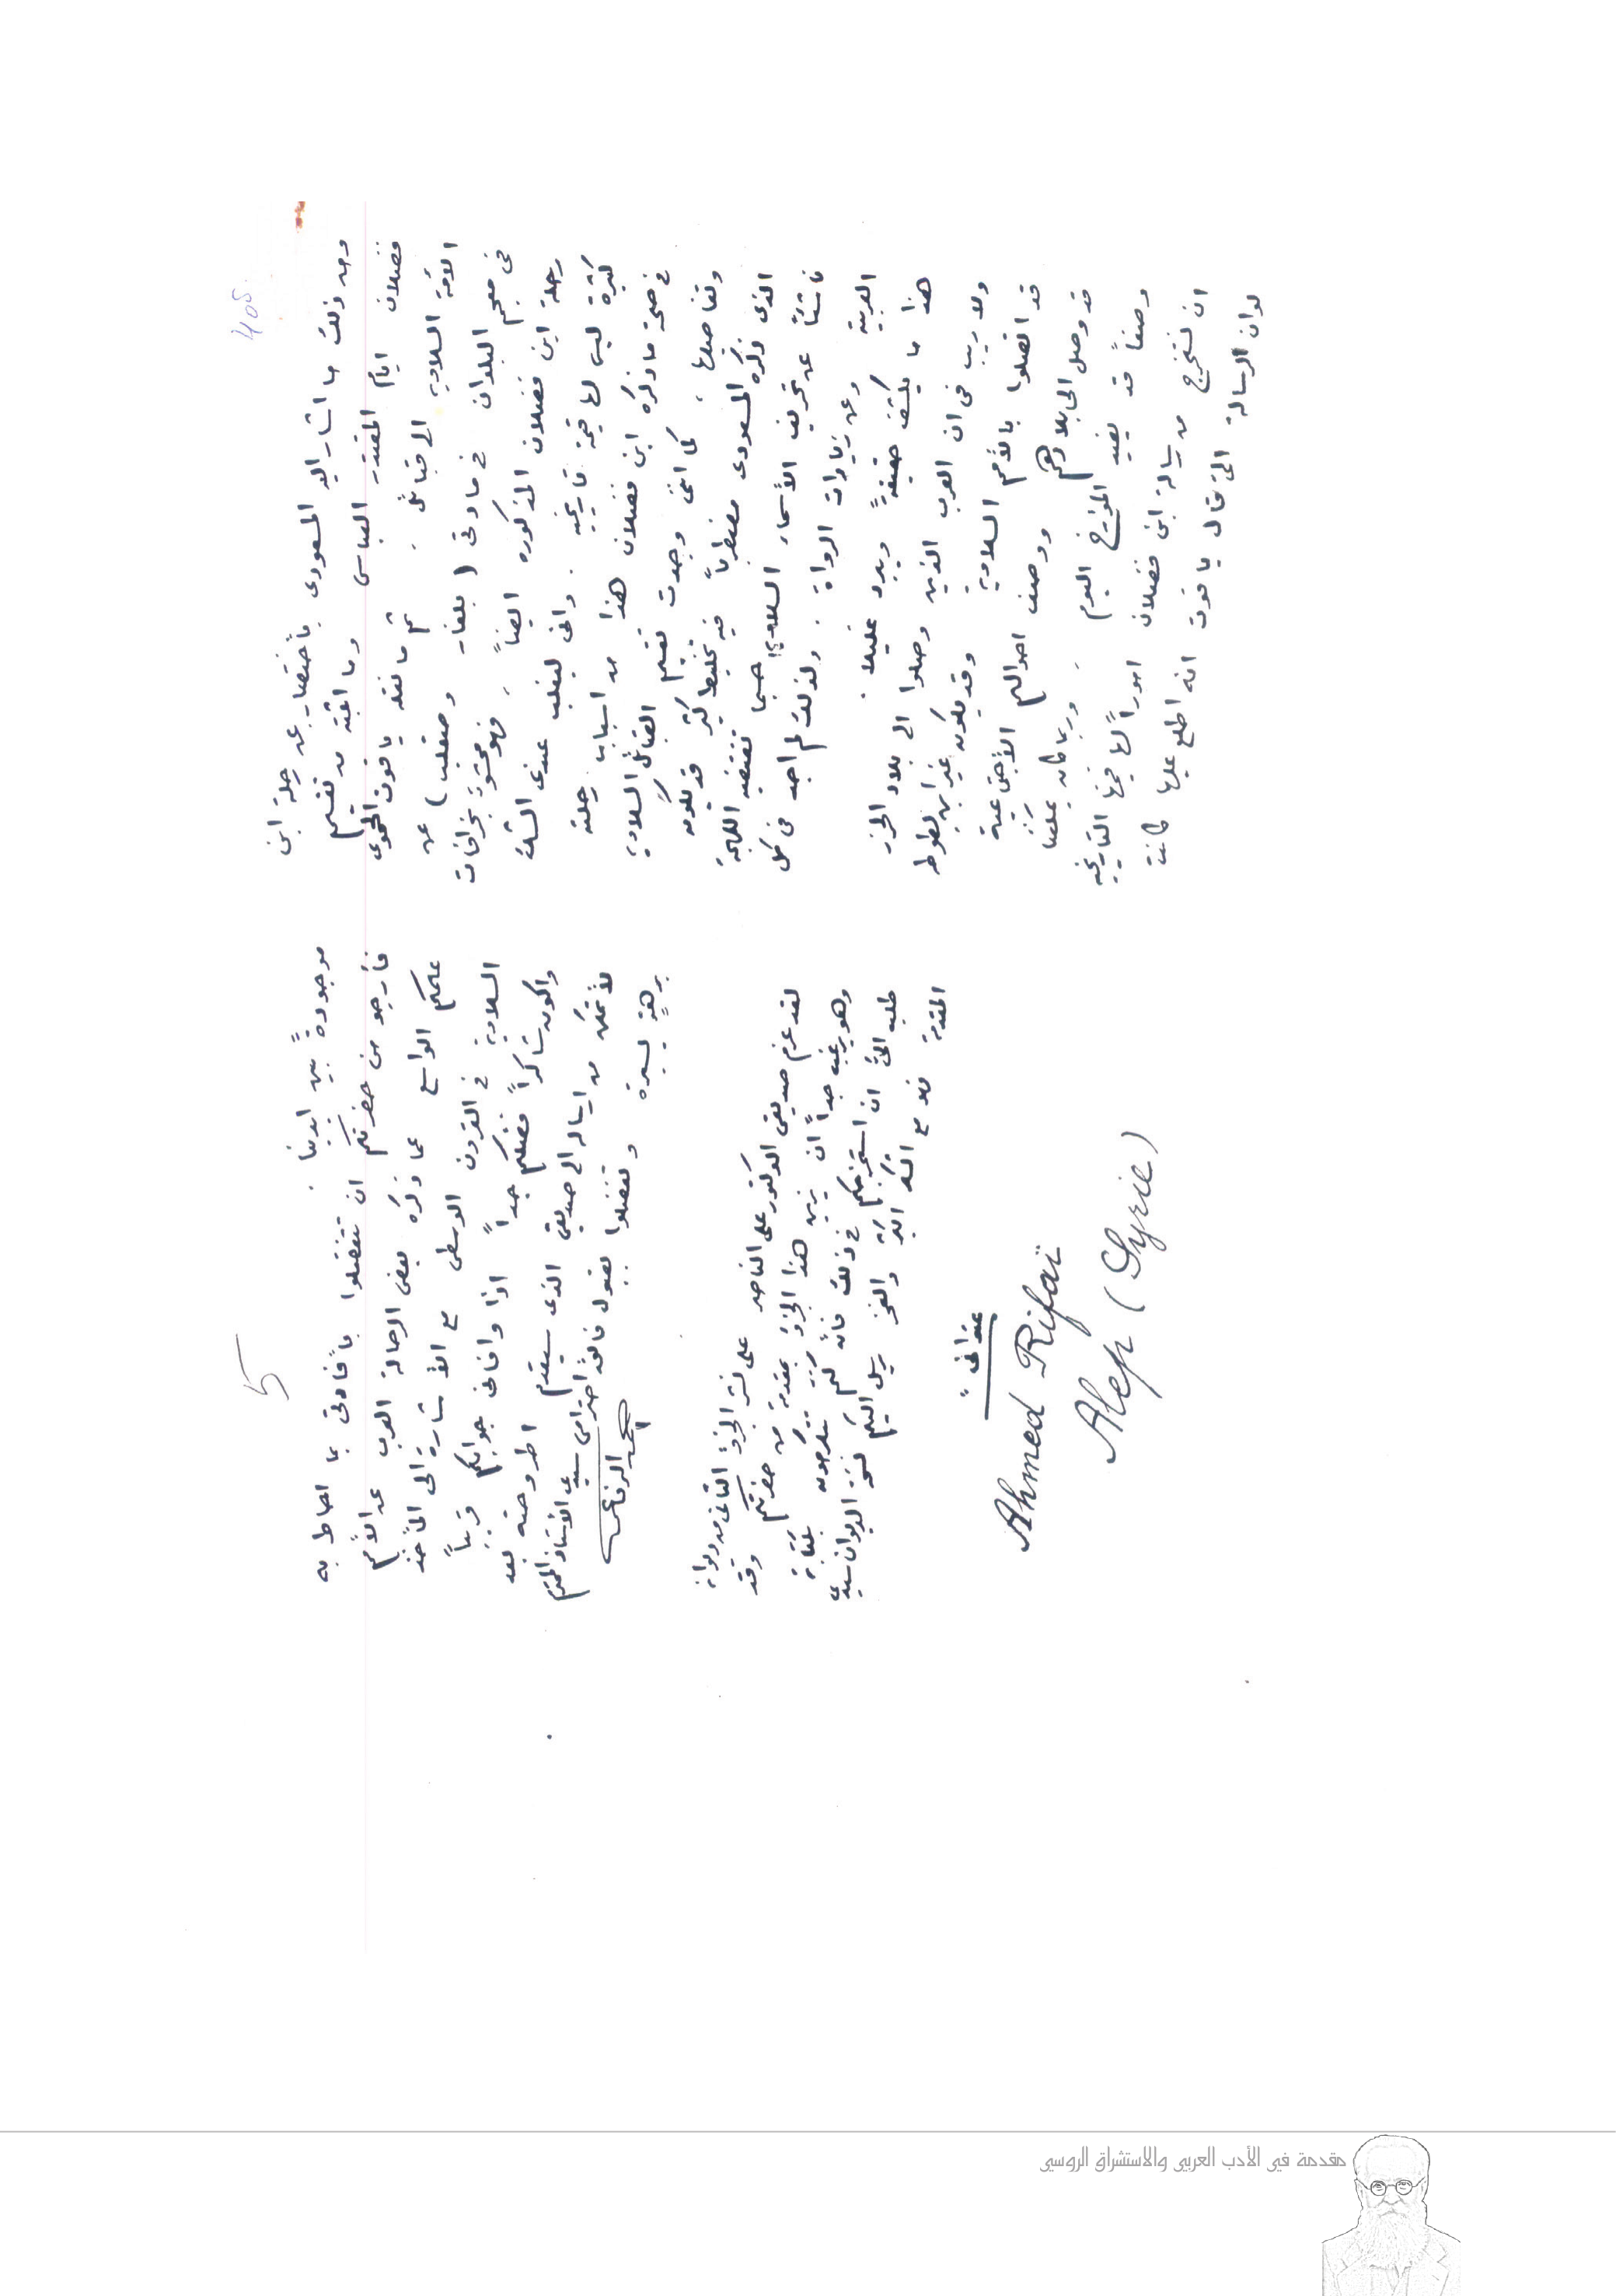 405
ومن ذلك ما اشار اليه المسعودى بأختصار عن رحلة ابن
فضلان ايام المقتدر العباسى وما اثبته من تقسيم
الأمة السلاوية الى قبائل ، ثم ما نقله ياقوت الحموى
فى معجم البلدان فى مادتى ( بلغار وصقلب ) عن
رحلة ابن فضلان المذكوره ايضاً ، فهو محشوّ بخرافات
كثيرة ليس لها قيمة تاريخيه . وانى ليغلب عندى الشك
فى صحة ما ذكره ابن فضلان هذا من اسباب رحلته
وتفاصيلها ، كما اننى وجدت تقسيم القبائل السلاوية
الذى ذكره المسعودى مضطرباً فيه تخليط كثير قد يكون
ناشئاً عن تحريف الأسماء السلاوية حسبما تقتضيه اللهجة
العربية وعن زيادات الرواة . ولذلك لم اجد فى كل
هذا ما يكشف حقيقةً ويبرد غليلا .
ولا ريب فى ان العرب الذين وصلوا الى بلاد الخزر
قد اتصلوا بالأمم السلاوية وقد يكون غير ابن بطوطه
قد وصل الى بلادهم ووصف احوالهم الأجتماعية
وصفاً قد يفيد المؤرخ اليوم ، وربما كان يمكننا
ان نستخرج من رسالة ابن فضلان اموراً لها قيمتها التاريخيه
لو ان الرسالة التى قال ياقوت انه اطلع عليها كانت
5
موجودةً بين ايدينا .
فأرجو من حضرتكم ان تتفضلوا بأفادتى بما احاط به
علمكم الواسع عما ذكره بعض الرحالة العرب عن الأمم
السلاوية فى القرون الوسطى مع الأشارة الى المأخذ
واكون شاكراً فضلكم جداً اذا وافانى جوابكم قريباً
لأتمكن من ارساله الى صديقى الذى سيقدم اطروحته بعد
برهةٍ يسيرة وتفضلوا بقبول فائق احترامى سيدى الأستاذ المحترم
احمد الرفاعى
لقد عزم صديقى الدكتور على الناصر على نشر الجزء الثانى من ديوانه
وهو يرغب جداً ان يزين هذا الجزء بمقدمة من حضرتكم وقد
طلب الىّ ان استمزجكم فى ذلك فأن كنتم تتكرمون بكتابة
المقدمة فهو مع الشكر والفخر يرسل اليكم نسخة الديوان سيدى
عنوانى :
Ahmed Rifaï
Alep ( Syrie )
مقدمة في الأدب العربي والاستشراق الروسي